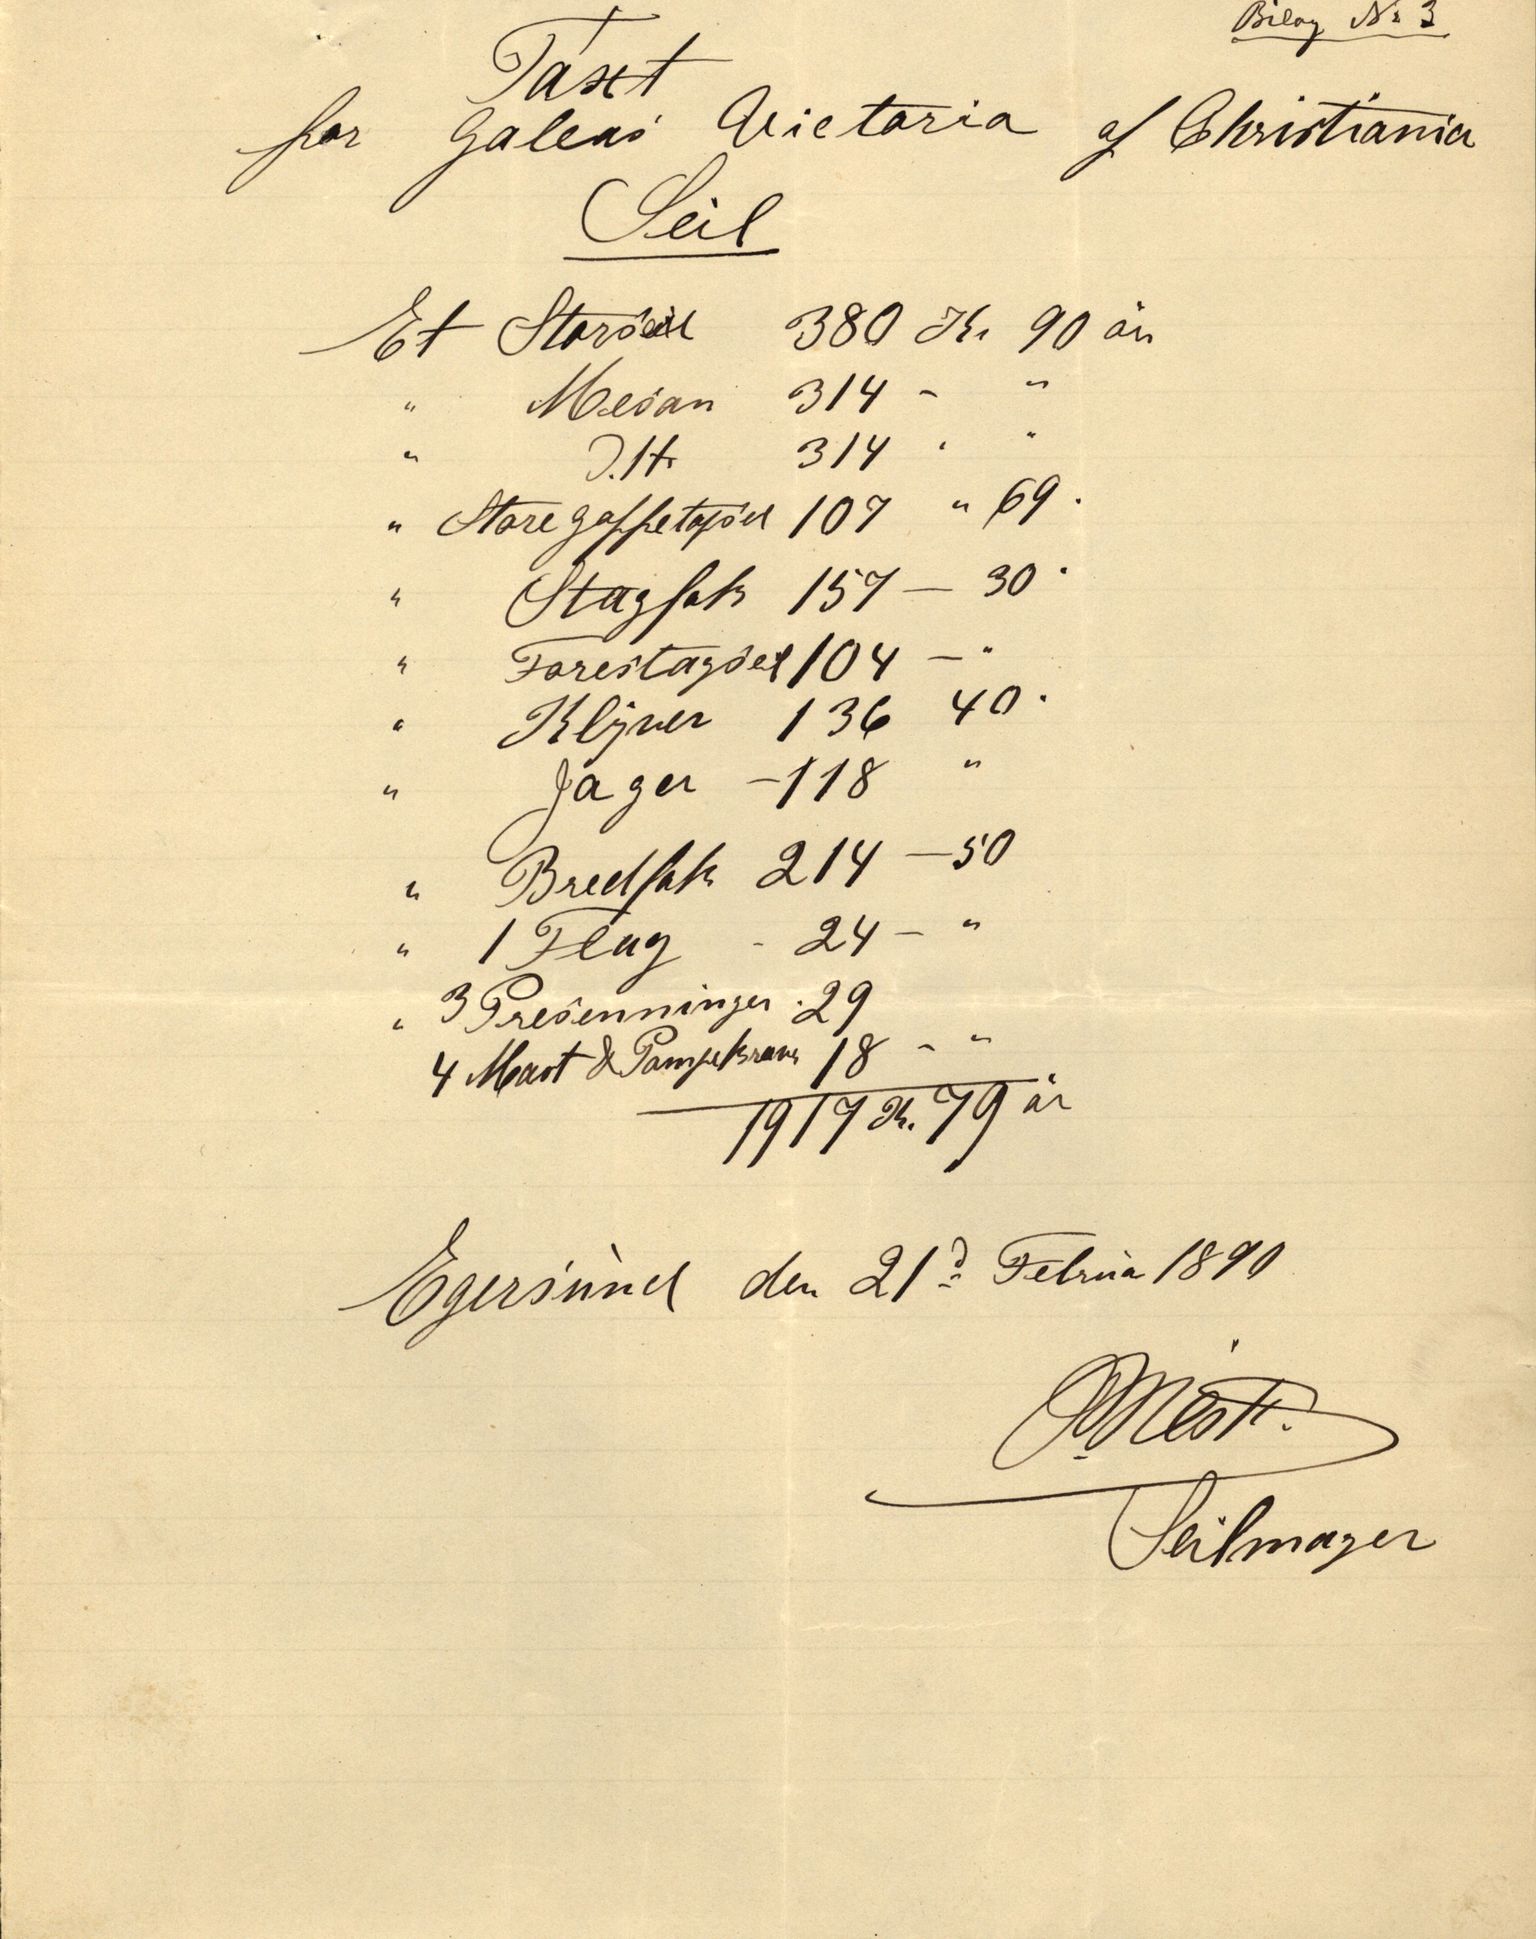 Bilag No 3
Taxt
for Galeas Victoria af Christiania
Seil
Et Storseil 380 Kr 90 ör
" Mesan 314 - "
" Dito 314 " "
" Store gaffeltopseil 107 " 69 "
" Stagfok 157 — 30 "
" Forestagseil 104 — "
" Klyver 136 40 "
" Jager — 118 "
" Bredfok 214 — 50
" 1 Flag - 24 — "
" 3 Presenninger . 29
4 Mast & Pompekraver 18 - "
1917 Kr. 79 ör
Egersund den 21d Februa 1890
Seilmager